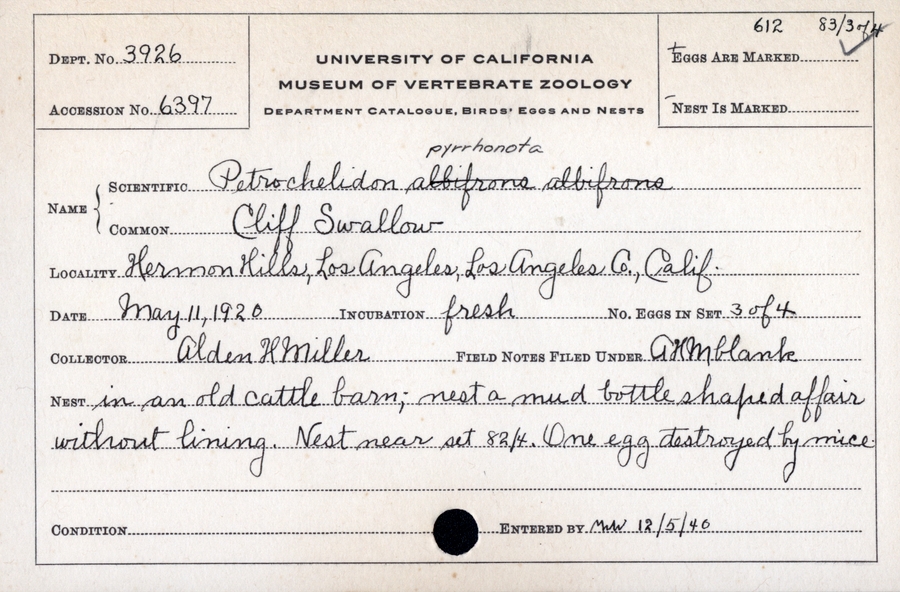 612 83/3 of 4
DEPT. NO. 3926
UNIVERSITY OF CALIFORNIA
EGGS ARE MARKED
MUSEUM OF VERTEBRATE ZOOLOGY
ACCESSION NO. 6397
DEPARTMENT CATALOGUE, BIRDS' EGGS AND NESTS
NEST IS MARKED
pyrrhonota
NAME
SCIENTIFIC Petrochelidon albifrons albifrons
COMMON Cliff Swallow
LOCALITY Hermon Hills, Los Angeles, Los Angeles Co., Calif.
DATE May 11, 1920 INCUBATION fresh NO. EGGS IN SET 3 of 4
COLLECTOR Alden H Miller FIELD NOTES FILED UNDER AHM blank
NEST in an old cattle barn; nest a mud bottle shaped affair
without lining. Nest near set 82/4. One egg destroyed by mice.
CONDITION ENTERED BY 12/5/40